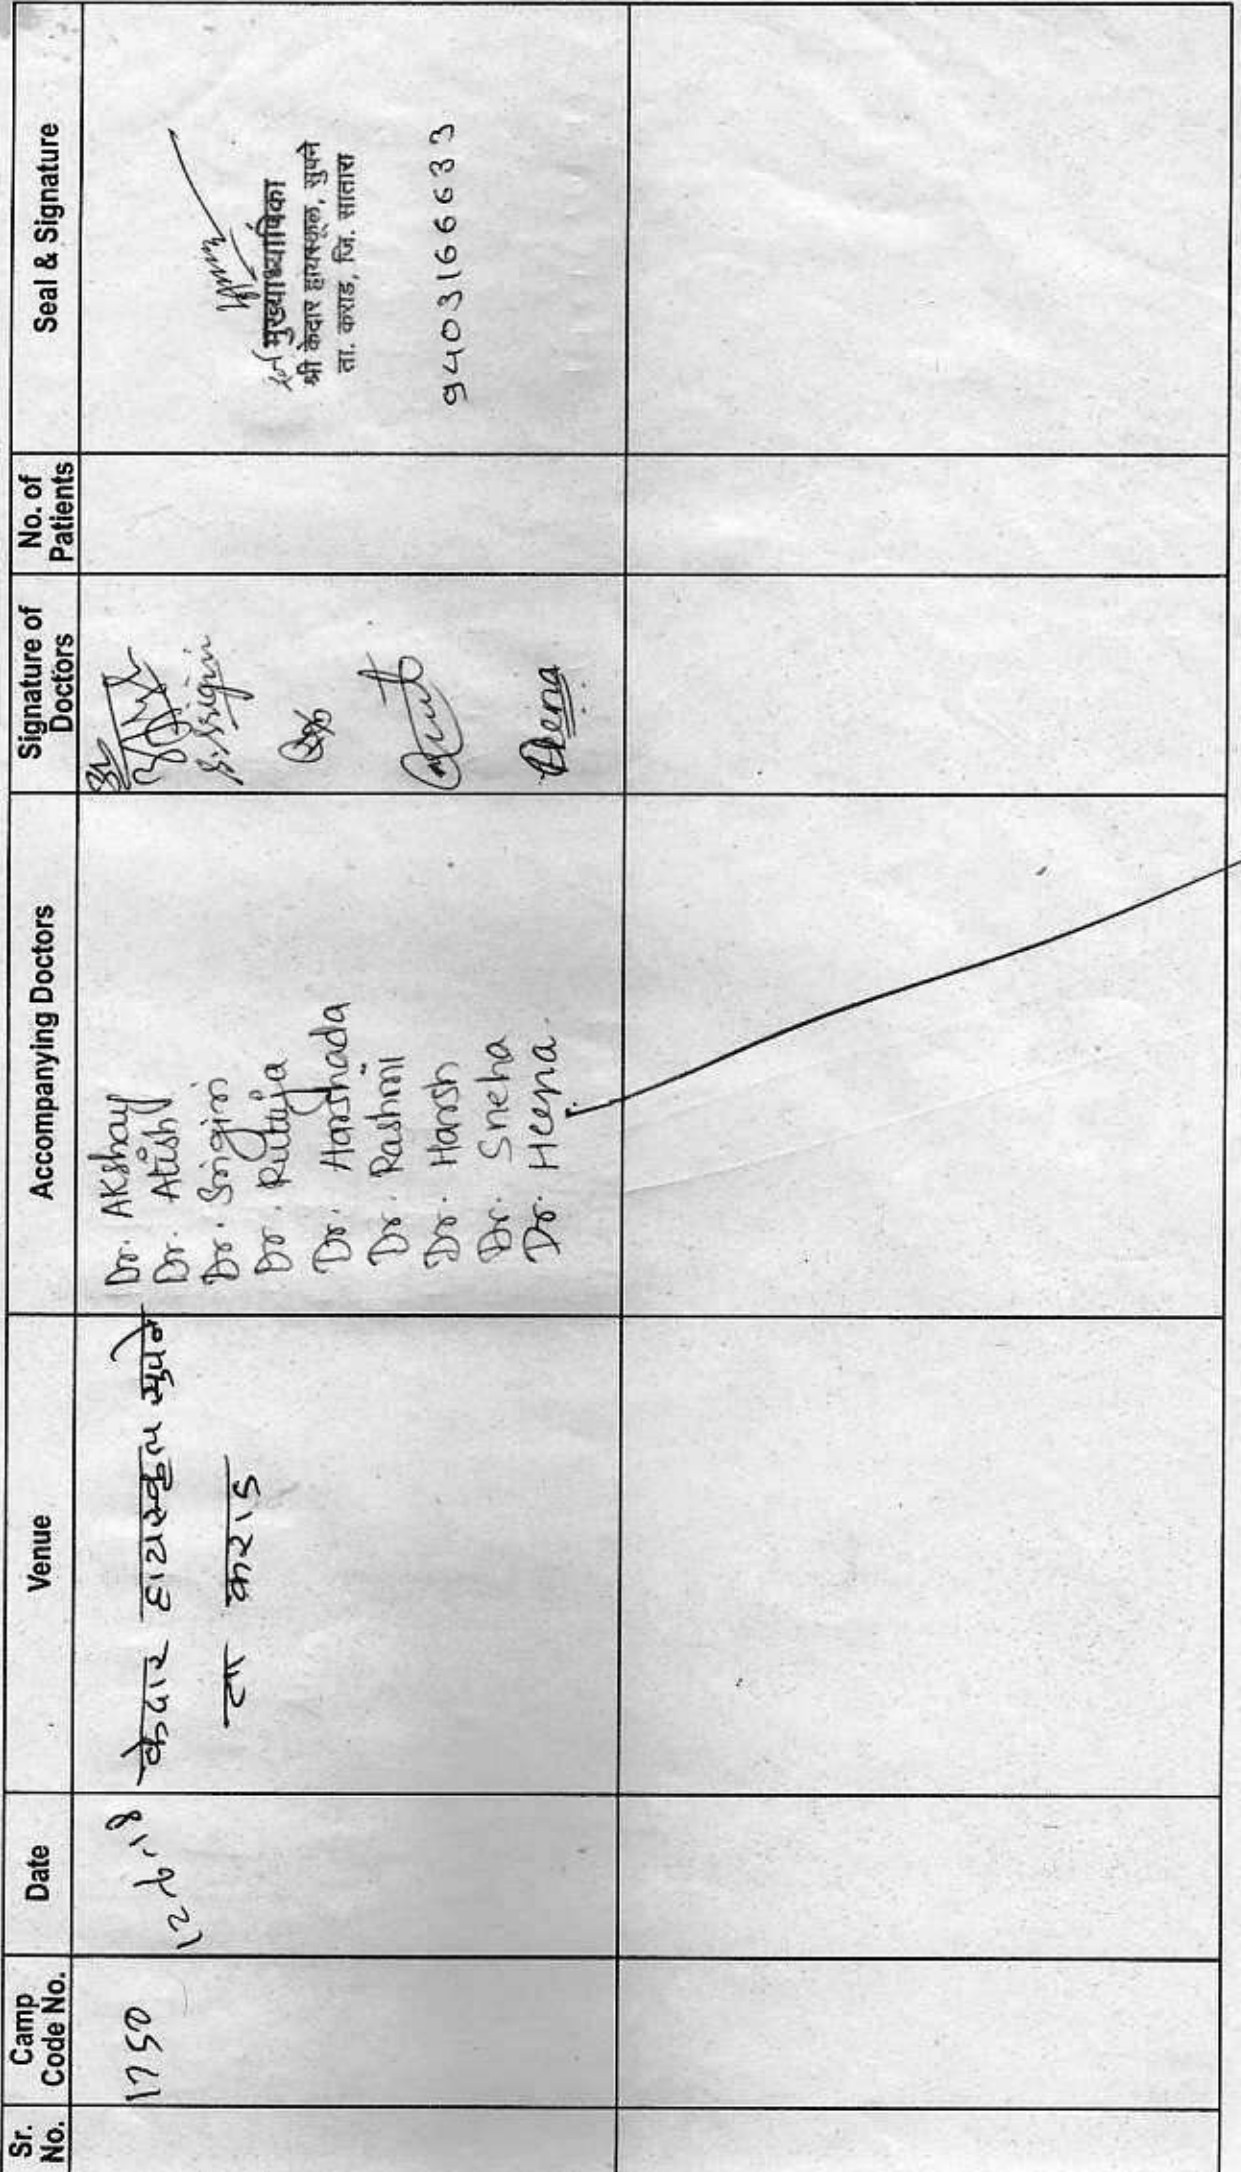 Sr. No.
Camp Code No.
Date
Venue
Accompanying Doctors
Signature of Doctors
No. of Patients
Seal & Signature
1750
12-6-18
केदार हायस्कूल सुपने
ता कराड
Dr. Akshay
Dr. Atish
Dr. Srigiri
Dr. Rutuja
Dr. Harshada
Dr. Rashmi
Dr. Harsh
Dr. Sneha
Dr. Heena.
S. Srigiri
Heena
मुख्याध्यापिका
श्री केदार हायस्कूल, सुपने
ता. कराड, जि. सातारा
9403166633